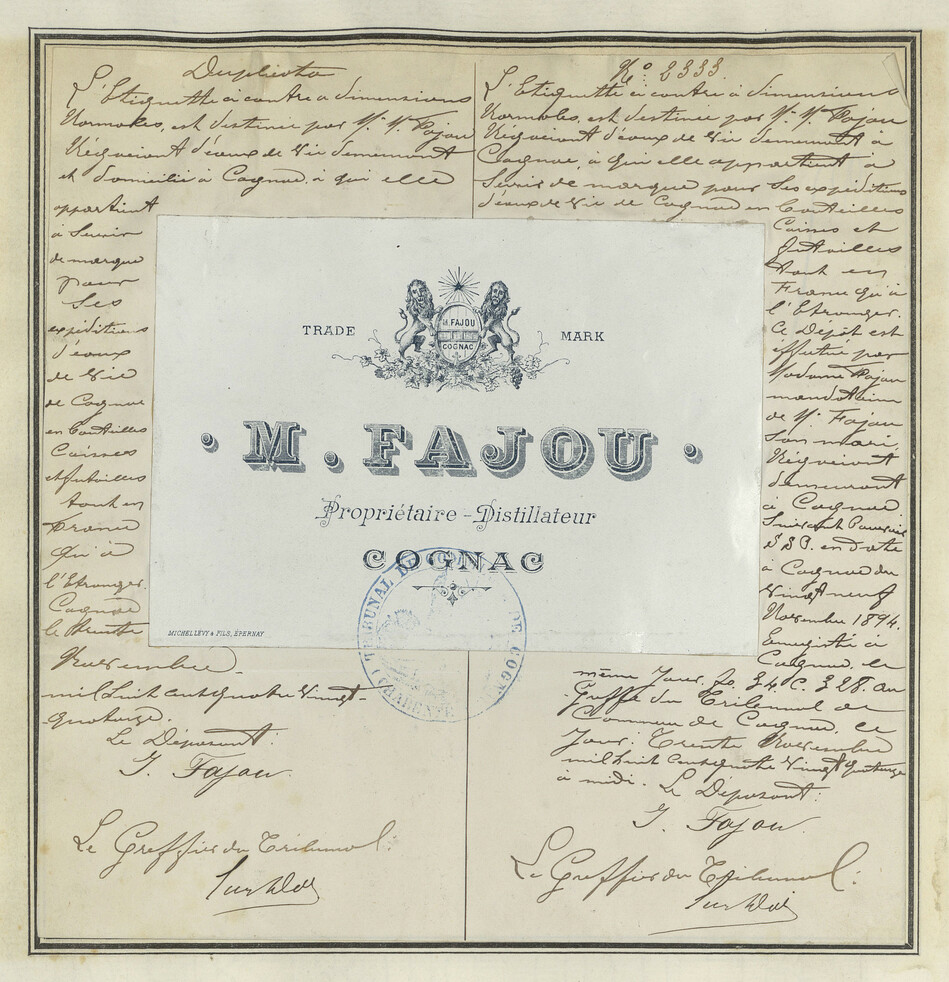 Duplicata
L'Etiquette ci contre à dimensions
Normales, est destinée par Mr M. Fajou
Négociant d'eaux de Vie demeurant
et domicilié à Cognac, à qui elle
appartient
à Servir
de marque
pour
Ses
expéditions
d'eaux
de Vie
de Cognac
en Bouteilles
Caisses
et futailles
tant en
France
qu'à
l'Etranger.
Cognac
le trente
Novembre
mil huit cent quatre Vingt
quatorze.
Le Déposant:
J. Fajou.
Le Greffier du Tribunal:
No: 2333.
L'Etiquette ci contre à dimensions
Normales, est destinée par Mr M. Fajou
Négociant d'eaux de Vie demeurant à
Cognac, à qui elle appartient à
Servir de marque pour Ses expéditions
d'eaux de Vie de Cognac en Bouteilles
Caisses et
futailles
tant en
France qu'à
l'Etranger.
Ce Dépôt est
effectué par
Madame Fajou
mandataire
de Mr Fajou
Son mari
Négociant
demeurant
à Cognac
Suivant Pouvoir
S.S.P. en date
à Cognac du
Vingt neuf
Novembre 1894.
Enregistré à
Cognac, le
même Jour. fo. 34. C. 328. au
Greffe du Tribunal de
Commerce de Cognac, ce
Jour: Trente Novembre
mil huit cent quatre Vingt quatorze
à midi. Le Déposant:
J. Fajou.
Le Greffier du Tribunal:
M. FAJOU
COGNAC
TRADE MARK
• M. FAJOU •
Propriétaire - Distillateur
COGNAC
MICHEL LÉVY & FILS, ÉPERNAY
TRIBUNAL DE COMMERCE DE COGNAC
(CHARENTE)